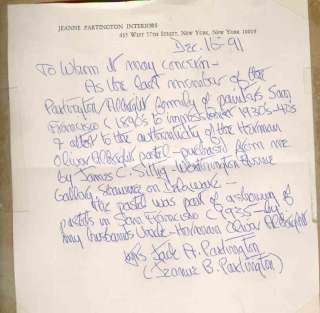 JEANNE PARTINGTON INTERIORS
455 WEST 57TH STREET, NEW YORK, NEW YORK 10019
Dec. 16 - 91
To Whom It may concern -
As the last member of the
Partington Albright family of painters San
Francisco (1890's to impressionism 1930s-40's
I attest to the authenticity of the Herman
Oliver Albright pastel - purchase from me
by James C. - Avenue
Gallery in Delaware -
The pastel was part of a showing of
pastels in San Francisco (1935 - by
my husbands Uncle - Herman Oliver Albright
Mrs Jack A. Partington
(Jeanne B. Partington)